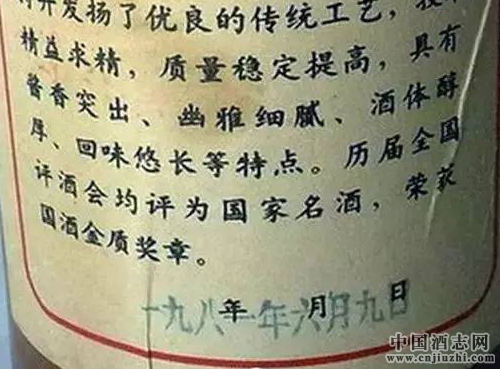 发扬了优良的传统工艺，
精益求精，质量稳定提高，具有
酱香突出、幽雅细腻、酒体醇
厚、回味悠长等特点。历届全国
评酒会均评为国家名酒，荣获
国酒金质奖章。
年 月 日
一九八一年六月九日
中国酒志网
www.cnjiuzhi.com